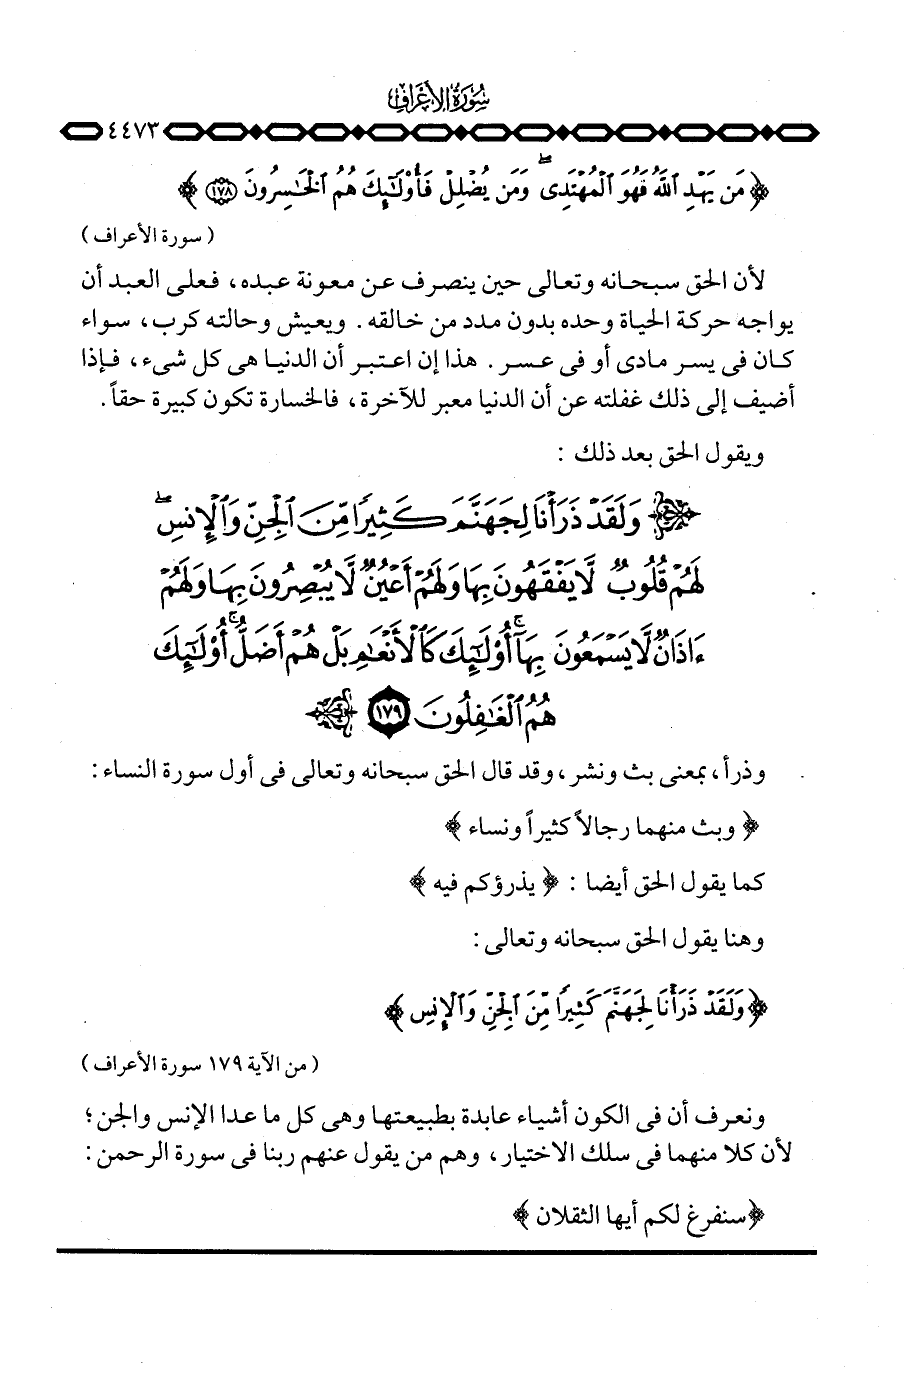 سُورَةُ الأَعْرَافِ
٤٤٧٣
﴿ مَن يَهْدِ ٱللَّهُ فَهُوَ ٱلْمُهْتَدِى ۖ وَمَن يُضْلِلْ فَأُو۟لَـٰٓئِكَ هُمُ ٱلْخَـٰسِرُونَ ﴿١٧٨﴾ ﴾
( سورة الأعراف )
لأن الحق سبحانه وتعالى حين ينصرف عن معونة عبده، فعلى العبد أن
يواجه حركة الحياة وحده بدون مدد من خالقه . ويعيش وحالته كرب، سواء
كان فى يسر مادى أو فى عسر . هذا إن اعتبر أن الدنيا هى كل شىء، فإذا
أضيف إلى ذلك غفلته عن أن الدنيا معبر للآخرة، فالخسارة تكون كبيرة حقاً.
ويقول الحق بعد ذلك :
﴿ وَلَقَدْ ذَرَأْنَا لِجَهَنَّمَ كَثِيرًا مِّنَ ٱلْجِنِّ وَٱلْإِنسِ ۖ
لَهُمْ قُلُوبٌ لَّا يَفْقَهُونَ بِهَا وَلَهُمْ أَعْيُنٌ لَّا يُبْصِرُونَ بِهَا وَلَهُمْ
ءَاذَانٌ لَّا يَسْمَعُونَ بِهَآ ۚ أُو۟لَـٰٓئِكَ كَٱلْأَنْعَـٰمِ بَلْ هُمْ أَضَلُّ ۚ أُو۟لَـٰٓئِكَ
هُمُ ٱلْغَـٰفِلُونَ ﴿١٧٩﴾ ﴾
وذرأ، بمعنى بث ونشر، وقد قال الحق سبحانه وتعالى فى أول سورة النساء :
﴿ وبث منهما رجالاً كثيراً ونساء ﴾
كما يقول الحق أيضا : ﴿ يذرؤكم فيه ﴾
وهنا يقول الحق سبحانه وتعالى :
﴿ وَلَقَدْ ذَرَأْنَا لِجَهَنَّمَ كَثِيرًا مِّنَ ٱلْجِنِّ وَٱلْإِنسِ ﴾
( من الآية ١٧٩ سورة الأعراف )
ونعرف أن فى الكون أشياء عابدة بطبيعتها وهى كل ما عدا الإنس والجن؛
لأن كلا منهما فى سلك الاختيار، وهم من يقول عنهم ربنا فى سورة الرحمن :
﴿ سنفرغ لكم أيها الثقلان ﴾